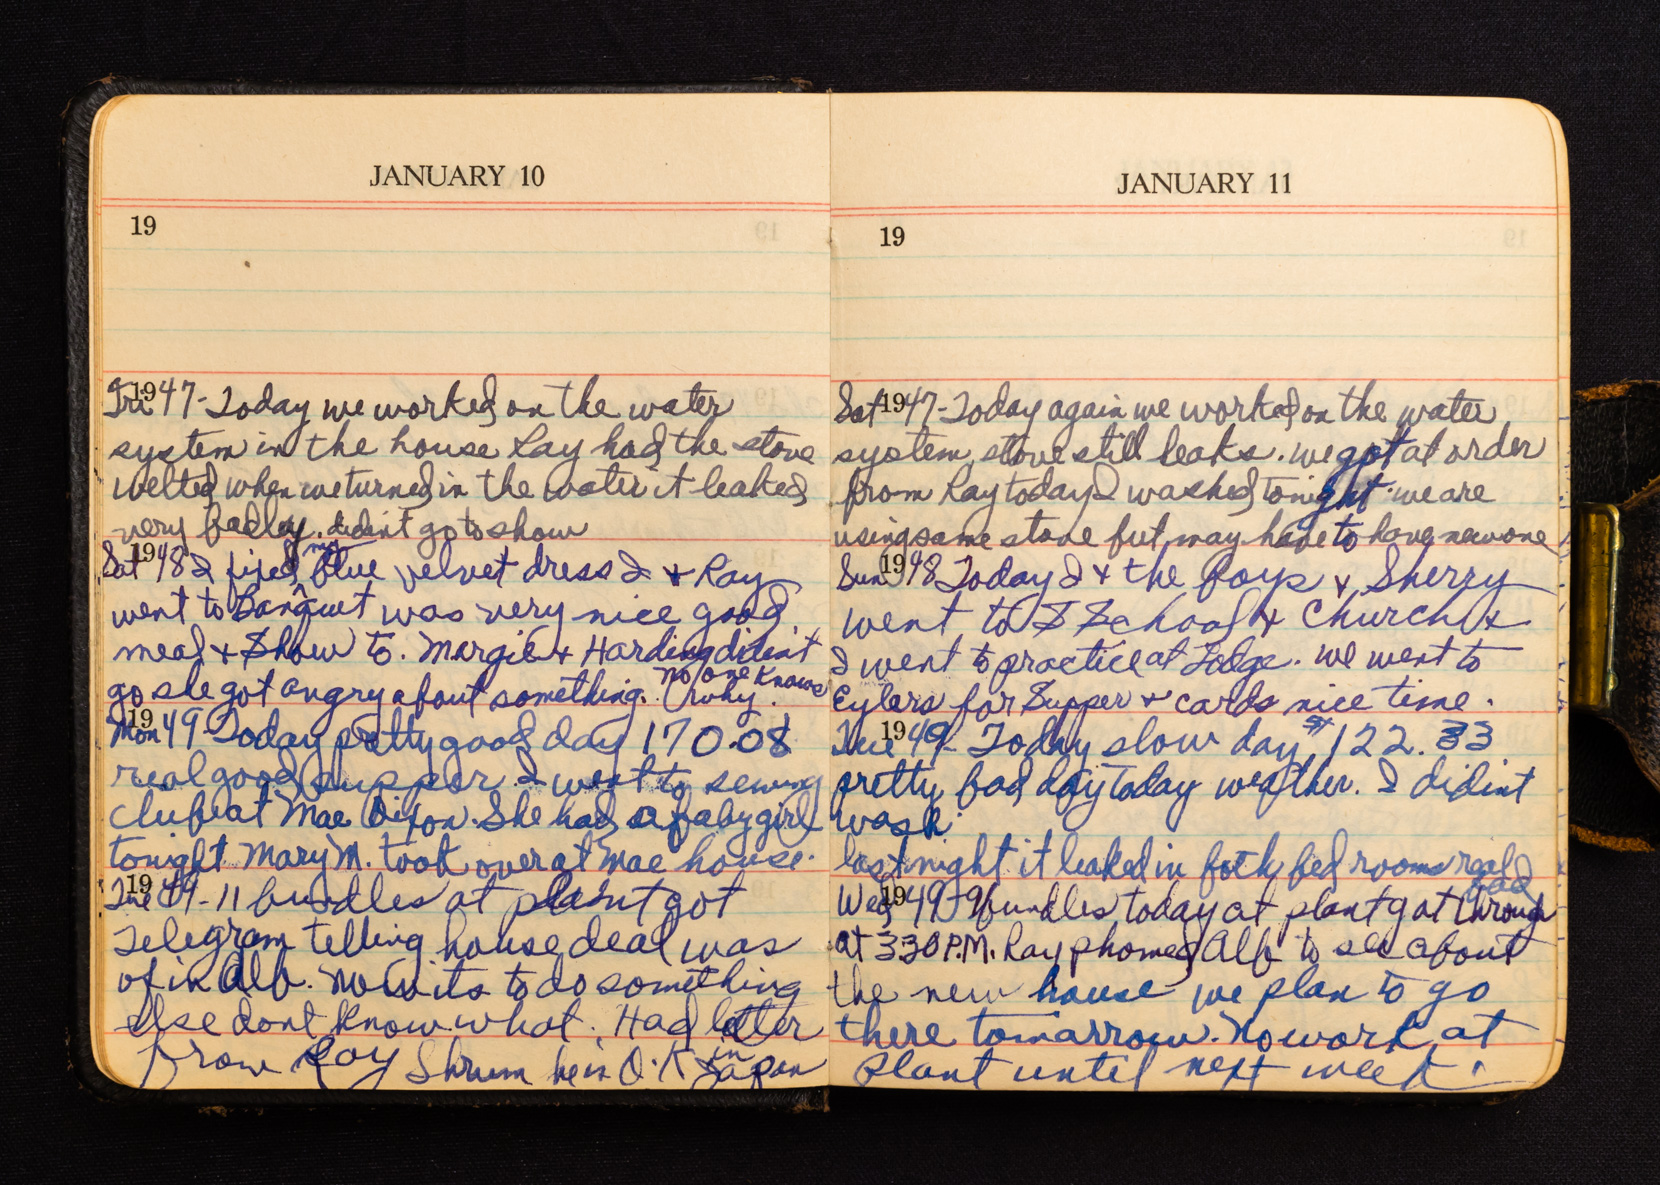 JANUARY 10
19
Fri 1947-Today we worked on the water
system in the house Ray had the stove
welted when we turned in the water it leaked
very badley. didint go to show
Sat 1948 I fixed my blue velvet dress I & Ray
went to Banquet was very nice good
meal & Show to. Margie & Harding didint
go she got angry about something. no one knows
why.
Mon 1949-Today pretty good day 170.08
real good supper. I went to sewing
club at Mae Dixon. She had a baby girl
tonight Mary M. took over at Mae house.
Tue 1949-11 bundles at plant got
Telegram telling house deal was
of in Alb. Now its to do something
else dont know what. Had letter
from Ray Shrum he in O.K in Japan
JANUARY 11
19
Sat 1947-Today again we worked on the water
system, stove still leaks. we got at order
from Ray today I washed tonight we are
using same stove but may have to have new one
Sun 1948 Today I & the Boys & Sherry
went to S School & Church &
I went to practice at Lodge. we went to
Eylers for Supper & cards nice time.
Tue 1949- Today slow day $122.33
pretty bad day today weather. I didint
wash
last night it leaked in both bed rooms real
bad
Wed 1949-9 bundles today at plant got through
at 3:30 P.M. Ray phoned Alb to see about
the new house we plan to go
there tomarrow. No work at
plant until next week.